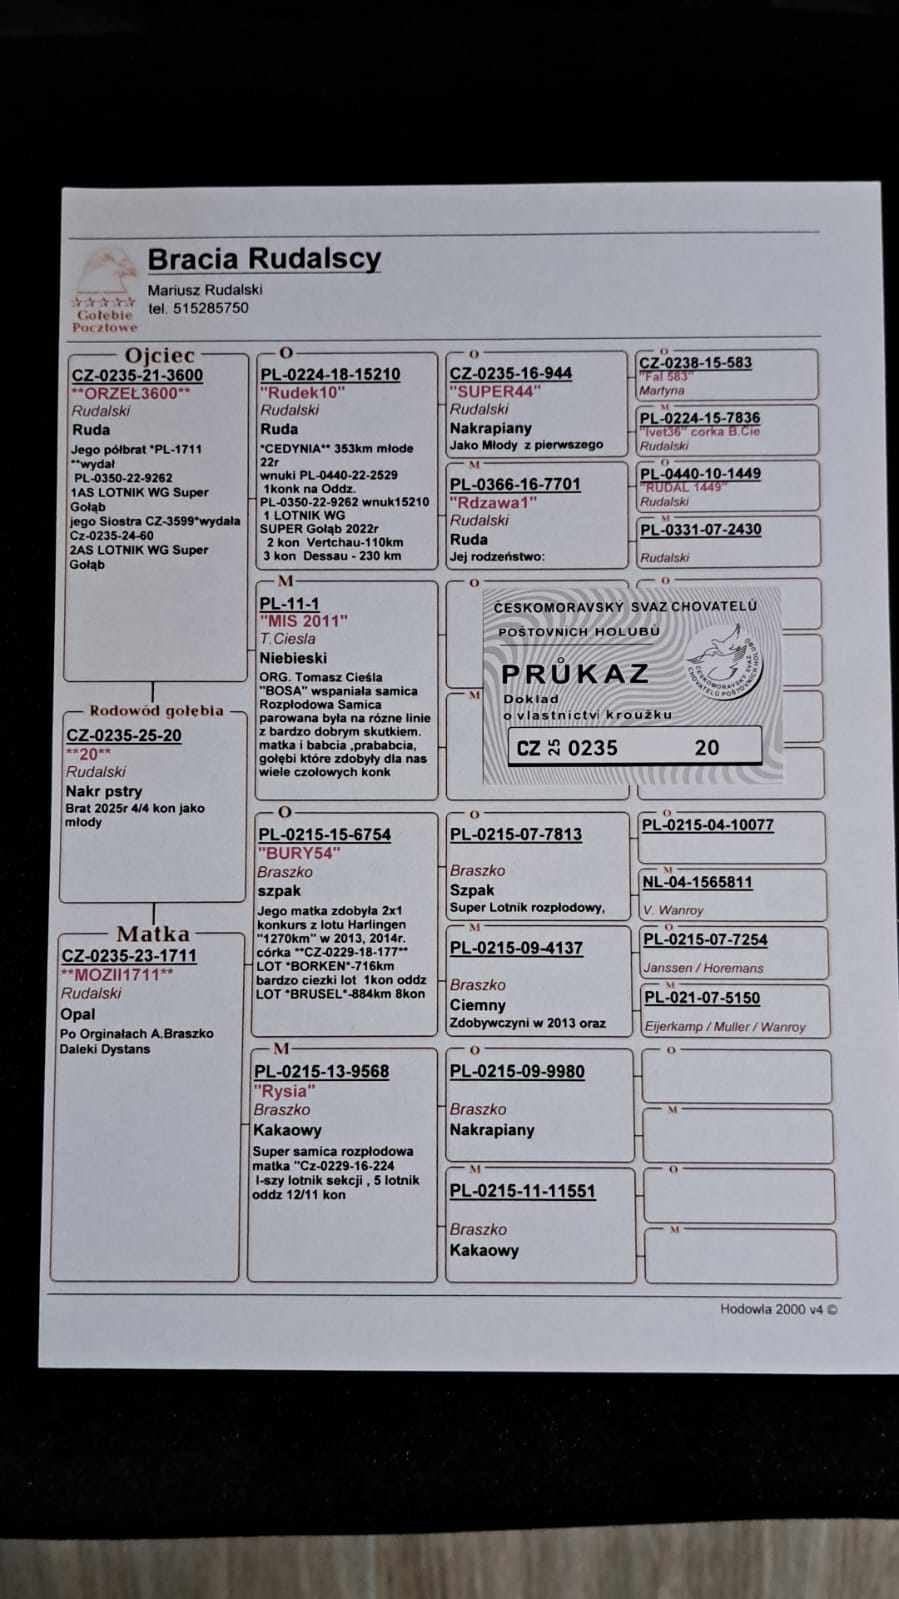 Bracia Rudalscy
Mariusz Rudalski
tel. 515285750
Gołębie
Pocztowe
Ojciec
CZ-0235-21-3600
**ORZEŁ3600**
Rudalski
Ruda
Jego półbrat *PL-1711
**wydał
PL-0350-22-9262
1AS LOTNIK WG Super
Gołąb
jego Siostra CZ-3599*wydała
Cz-0235-24-60
2AS LOTNIK WG Super
Gołąb
Rodowód gołebia
CZ-0235-25-20
**20**
Rudalski
Nakr pstry
Brat 2025r 4/4 kon jako
młody
Matka
CZ-0235-23-1711
**MOZII1711**
Rudalski
Opal
Po Orginałach A.Braszko
Daleki Dystans
O
PL-0224-18-15210
"Rudek10"
Rudalski
Ruda
*CEDYNIA** 353km młode
22r
wnuki PL-0440-22-2529
1konk na Oddz.
PL-0350-22-9262 wnuk15210
1 LOTNIK WG
SUPER Gołąb 2022r
2 kon Vertchau-110km
3 kon Dessau - 230 km
M
PL-11-1
"MIS 2011"
T.Ciesla
Niebieski
ORG. Tomasz Cieśla
"BOSA" wspaniała samica
Rozpłodowa Samica
parowana była na rózne linie
z bardzo dobrym skutkiem.
matka i babcia ,prababcia,
gołębi które zdobyły dla nas
wiele czołowych konk
O
PL-0215-15-6754
"BURY54"
Braszko
szpak
Jego matka zdobyła 2x1
konkurs z lotu Harlingen
"1270km" w 2013, 2014r.
córka **CZ-0229-18-177**
LOT *BORKEN*-716km
bardzo ciezki lot 1kon oddz
LOT *BRUSEL*-884km 8kon
M
PL-0215-13-9568
"Rysia"
Braszko
Kakaowy
Super samica rozpłodowa
matka "Cz-0229-16-224
I-szy lotnik sekcji , 5 lotnik
oddz 12/11 kon
O
CZ-0235-16-944
"SUPER44"
Rudalski
Nakrapiany
Jako Młody z pierwszego
M
PL-0366-16-7701
"Rdzawa1"
Rudalski
Ruda
Jej rodzeństwo:
O
M
O
PL-0215-07-7813
Braszko
Szpak
Super Lotnik rozpłodowy,
M
PL-0215-09-4137
Braszko
Ciemny
Zdobywczyni w 2013 oraz
O
PL-0215-09-9980
Braszko
Nakrapiany
M
PL-0215-11-11551
Braszko
Kakaowy
O
CZ-0238-15-583
"Fal 583"
Martyna
M
PL-0224-15-7836
"Ivet36" corka B.Cie
Rudalski
O
PL-0440-10-1449
"RUDAL 1449"
Rudalski
M
PL-0331-07-2430
Rudalski
O
ČESKOMORAVSKÝ SVAZ CHOVATELŮ
POŠTOVNÍCH HOLUBŮ
PRŮKAZ
Doklad
o vlastnictví kroužku
CZ 25 0235 20
ČESKOMORAVSKÝ SVAZ
CHOVATELŮ POŠTOVNÍCH HOLUBŮ
O
PL-0215-04-10077
M
NL-04-1565811
V. Wanroy
O
PL-0215-07-7254
Janssen / Horemans
M
PL-021-07-5150
Eijerkamp / Muller / Wanroy
O
M
O
M
Hodowla 2000 v4 ©